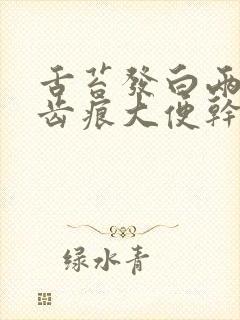 舌苔發白兩
齿痕大便幹
绿水青